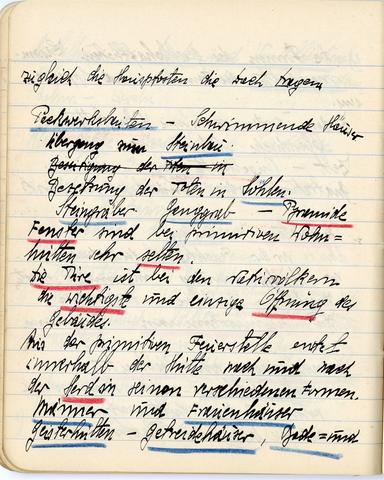 zugleich die Hauspfosten die Dach tragen
Peckwerksbauten – Schwimmende Häuser
übergang zum Steinbau
Beseitigung der Toten in
Bestattung der Toten in Höhlen.
Steingräber Ganggrab – Pyramide
Fenster sind bei primitiven Wohn=
hütten sehr selten.
Die Türe ist bei den naturvölkern
die wichtigste und einzige Öffnung des
Gebäudes.
Aus der primitiven Feuerstelle entst
innerhalb der Hütte nach und nach
der Herd in seinen verschiedenen Formen.
Männer und Frauenhäuser
Geisterhütten – Getreidehäuser, Bade= und